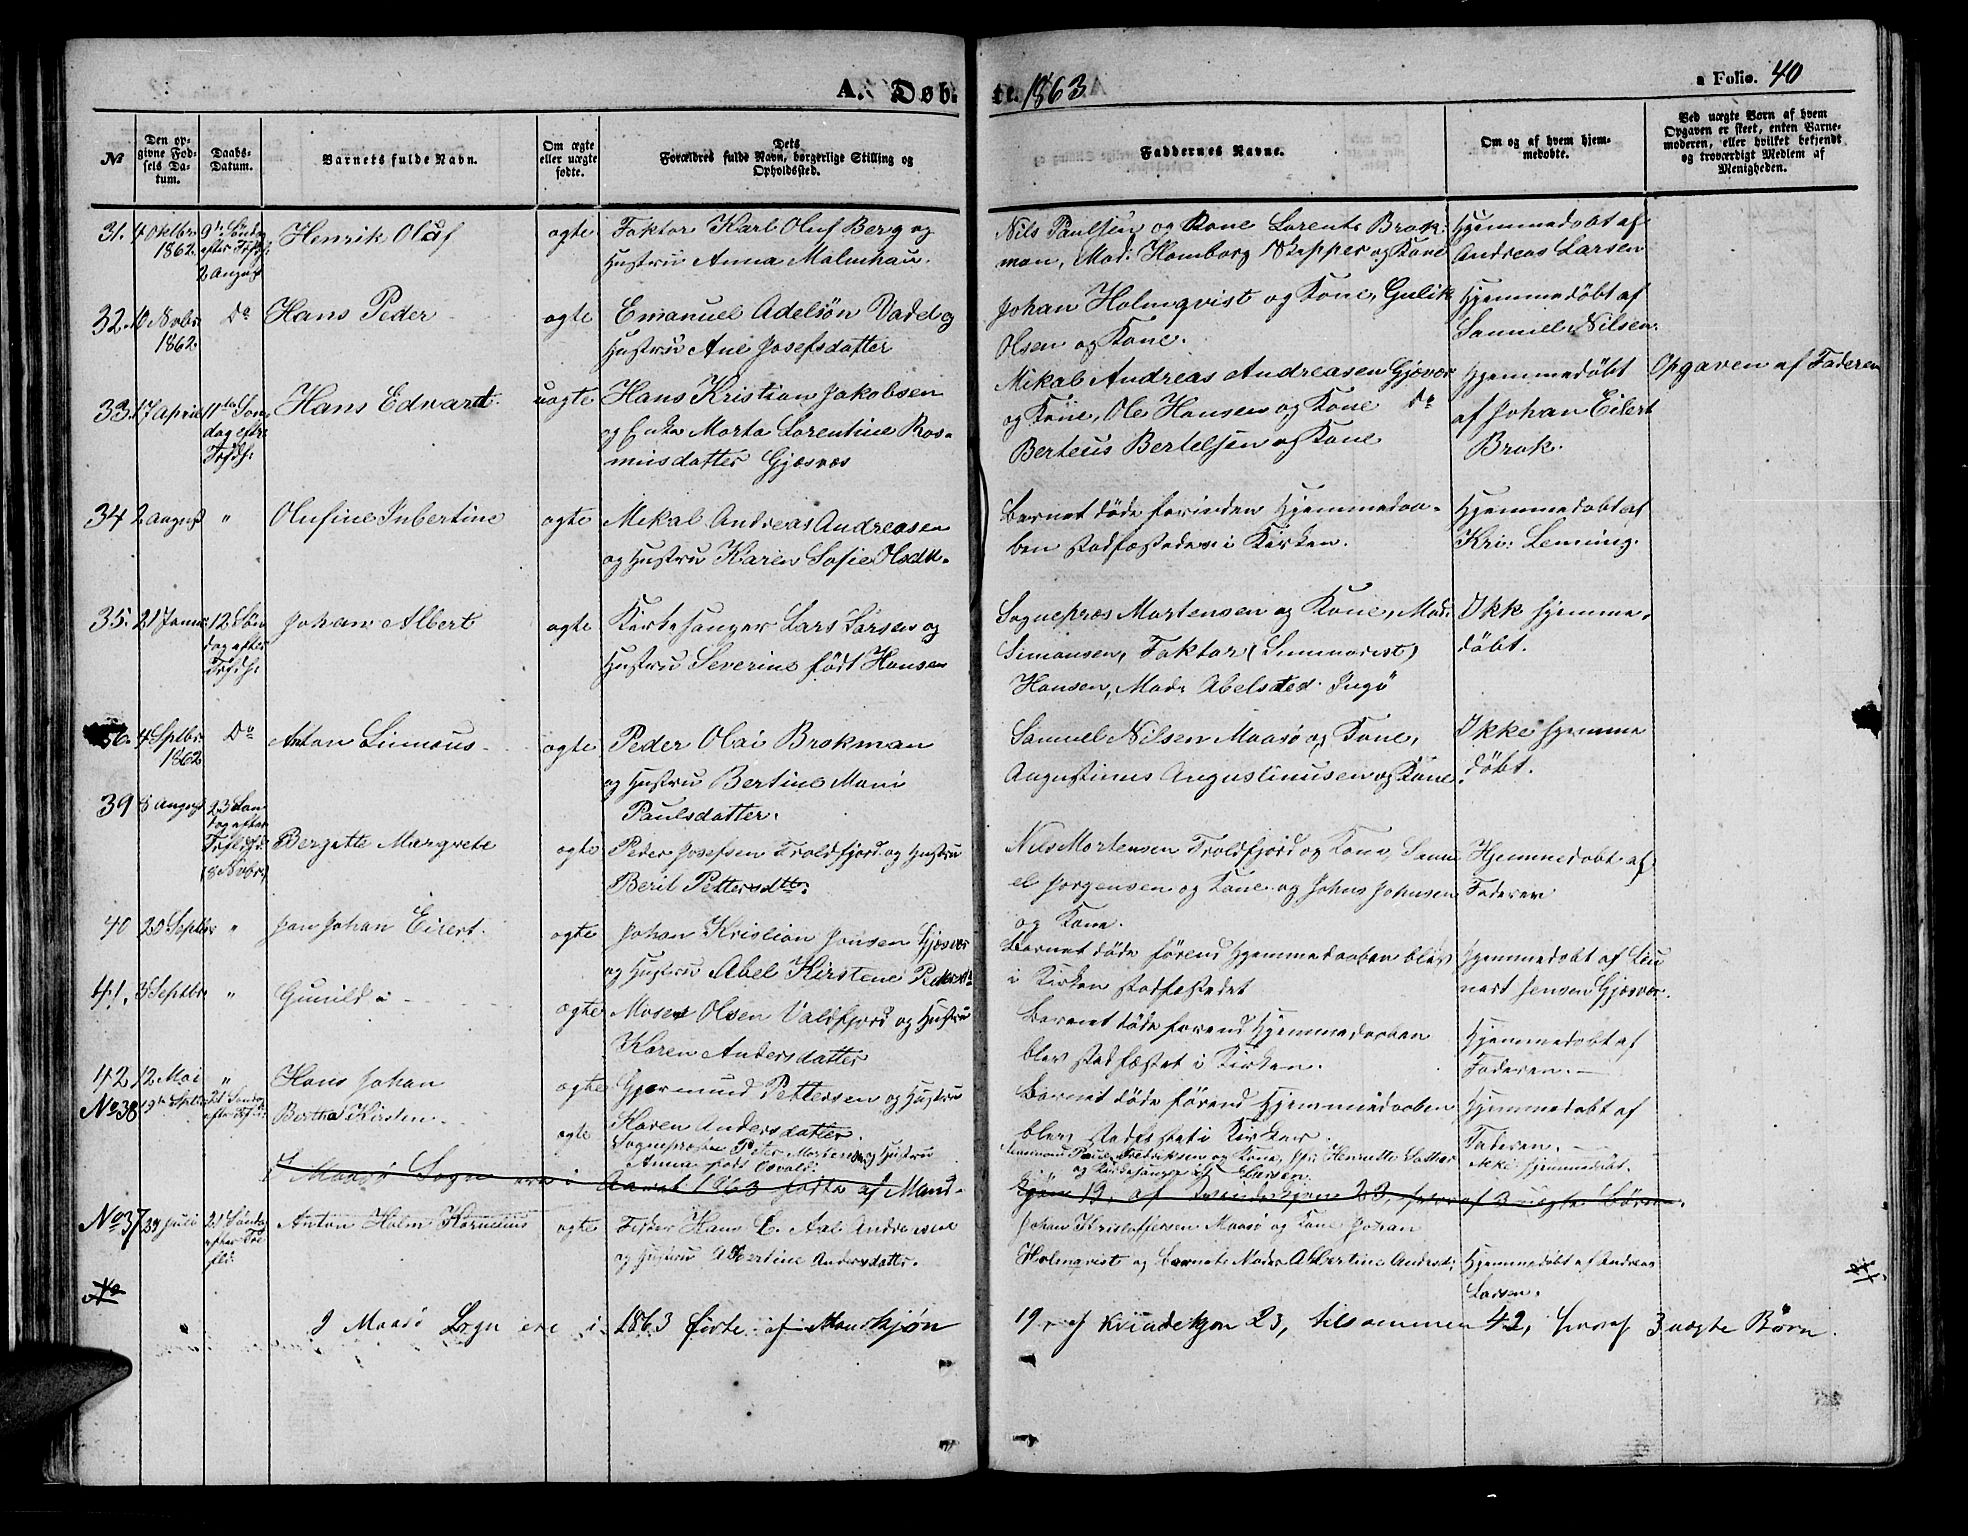 A. Døb- te. 1863
a Folio. 40
№
Den opgivne Fødsels Datum.
Daabs-Datum.
Barnets fulde Navn.
Om ægte eller uægte fødte.
Dets Forældres fulde Navn, borgerlige Stilling og Opholdssted.
Faddernes Navne.
Om og af hvem hjemmedøbte.
Ved uægte Børn af hvem Opgaven er skeet, enten Barnemoderen, eller hvilket betjendt og troværdigt Medlem af Menigheden.
31. 4 Oktbr 1862 9de Søndag efter Trfd. 2 August Henrik Oluf ogte Faktor Karl Oluf Berg og
Hustru Anna Malmhau.
Nils Paulsen og Kone Lorents Brok-
man, Mad: Homborg Skipper og Kone
Hjemmedøbt af
Andreas Larsen
32. Novbr 1862. Do Hans Peder ogte Emanuel Adelsøn Vadel og
Hustru Ane Josefsdatter
Johan Holmqvist og Kone, Gulik
Olsen og Kone.
Hjemmedøbt af
Samuel Nilsen.
33. 17 April 11te Søndag efter Trfdh: Hans Edvart uogte Hans Kristian Jakobsen
og Enke Marta Lorentine Ras-
musdatter Gjæsvær
Mikal Andreas Andreasen Gjæsvær
og Kone, Ole Hansen og Kone Do
Berteus Bertelsen og Kone
Hjemmedøbt
af Johan Eilert
Brok.
Opgaven af Faderen
34 2 august " Olufine Inbertine ogte Mikal Andreas Andreasen
og Hustru Karen Sofie Olsdtr.
Barnet døde forinden Hjemmedaa-
ben stadfæstedes i Kirken.
Hjemmedøbt af
Kri: Leming.
35. 21 Janur 12 Søndag efter Trfdh: Johan Albert ogte Kirkesanger Lars Larsen og
Hustru Severine født Hansen
Sognepræs Mortensen og Kone, Mad:
Simonsen, Faktor (Seminarist)
Hansen, Mad: Abelsted Ingø
Ikk hjemme-
døbt.
36. 4 Septbr 1862 Do Anton Linnæus ogte Peder Olai Brokman
og Hustru Bertine Mari
Paulsdatter.
Samuel Nilsen Maasø og Kone,
Augustinus Augustinusen og Kone.
Ikke hjemme
døbt.
39 8 August 23 Søndag efter Trefdh: (8 Novbr) Bergette Margrete ogte Peder Josefsen Troldfjord og Hustru
Beril Pettersdtr:
Nils Mortensen Troldfjord og Kone, Samu
el Jørgensen og Kone og Johns Johnsen
og Kone.
Hjemmedøbt af
Faderen
40 20 Septbr " Jon Johan Eilert. ogte Johan Kristian Jonsen Gjæsvær
og Hustru Abel Kirstene Pedersdtr
Barnet døde førend Hjemmedaaben blev
i Kirken stadfæstedet
Hjemmedøbt af Lin
nart Jensen Gjæsvær.
41. 3 Septbr " Gunild ogte Moses Olsen Valdfjord og Hustru
Karen Andersdatter
Barnet døde førend Hjemmedaaben
blev stadfæstet i Kirken.
Hjemmedøbt af
Faderen.
42. 12 Mai " Hans Johan ogte Gjermund Pettersen og Hustru
Karen Andersdatter.
Barnet døde førend Hjemmedaaben
blev stadfæstet i Kirken.
Hjemmedøbt af
Faderen.
No 38 19de Septbr 21 Søndag efter Trefd: Bertha Kirsten ogte Sogneprest Peter Mortensen og Hustru
Anna født Osvald.
Paul Fredriksen og Kone, Henriette
og Kirkesanger Larsen.
Ikke hjemmedøbt.
I Maasø Sogn ere i Aaret 1863 fødte af Mand-
kjøn 19, af Kvindekjøn 23, hvoraf 3 uægte Børn.
No 37 24 Juli 21 Søndag efter Tre fld: Anton Holm Kornelius ogte Fisker Hans E. Andreasen
og Hustru Albertine Andersdatter.
Johan Kristoffersen Maasø og Kone Johan
Holmqvist og Barnets Moder Albertine Andersdt:
Hjemmedøbt af Andreas
Larsen.
I Maasø Sogn ere i 1863 fødte af Mandkjøn 19, af Kvindekjøn 23, tilsammen 42, hvoraf 3 uægte Børn.